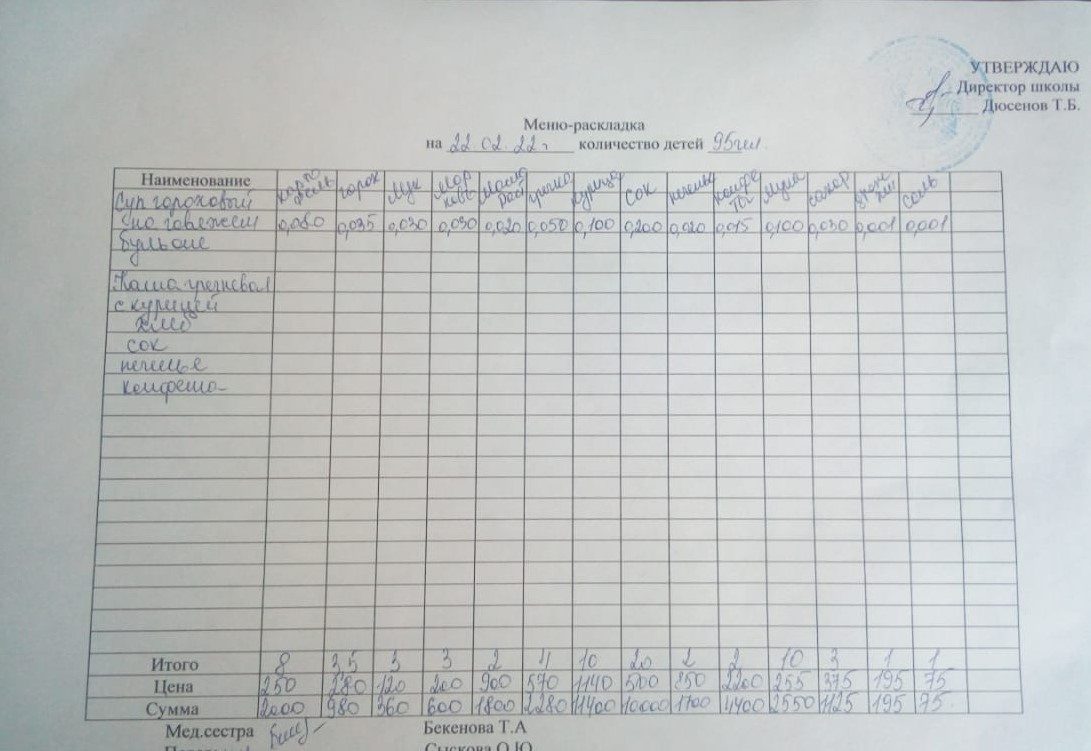 УТВЕРЖДАЮ
Директор школы
Дюсенов Т.Б.
Меню-раскладка
на 22.02.22г количество детей 95чел
Наименование картофель горох лук морковь масло раст гречка курица сок печенье конфеты мука сахар соль
Суп гороховый
на говяжем 0,080 0,035 0,030 0,030 0,020 0,050 0,100 0,200 0,020 0,015 0,100 0,030 0,001 0,001
бульоне
Каша гречневая
с курицей
хлеб
сок
печенье
конфета
Итого 8 3,5 3 3 2 4 10 20 2 2 10 3 1 1
Цена 250 280 120 200 900 570 1140 500 850 2200 255 375 195 75
Сумма 2000 980 360 600 1800 2280 11400 10000 1700 4400 2550 1125 195 75
Мед.сестра Бекенова Т.А
Сыскова О.Ю